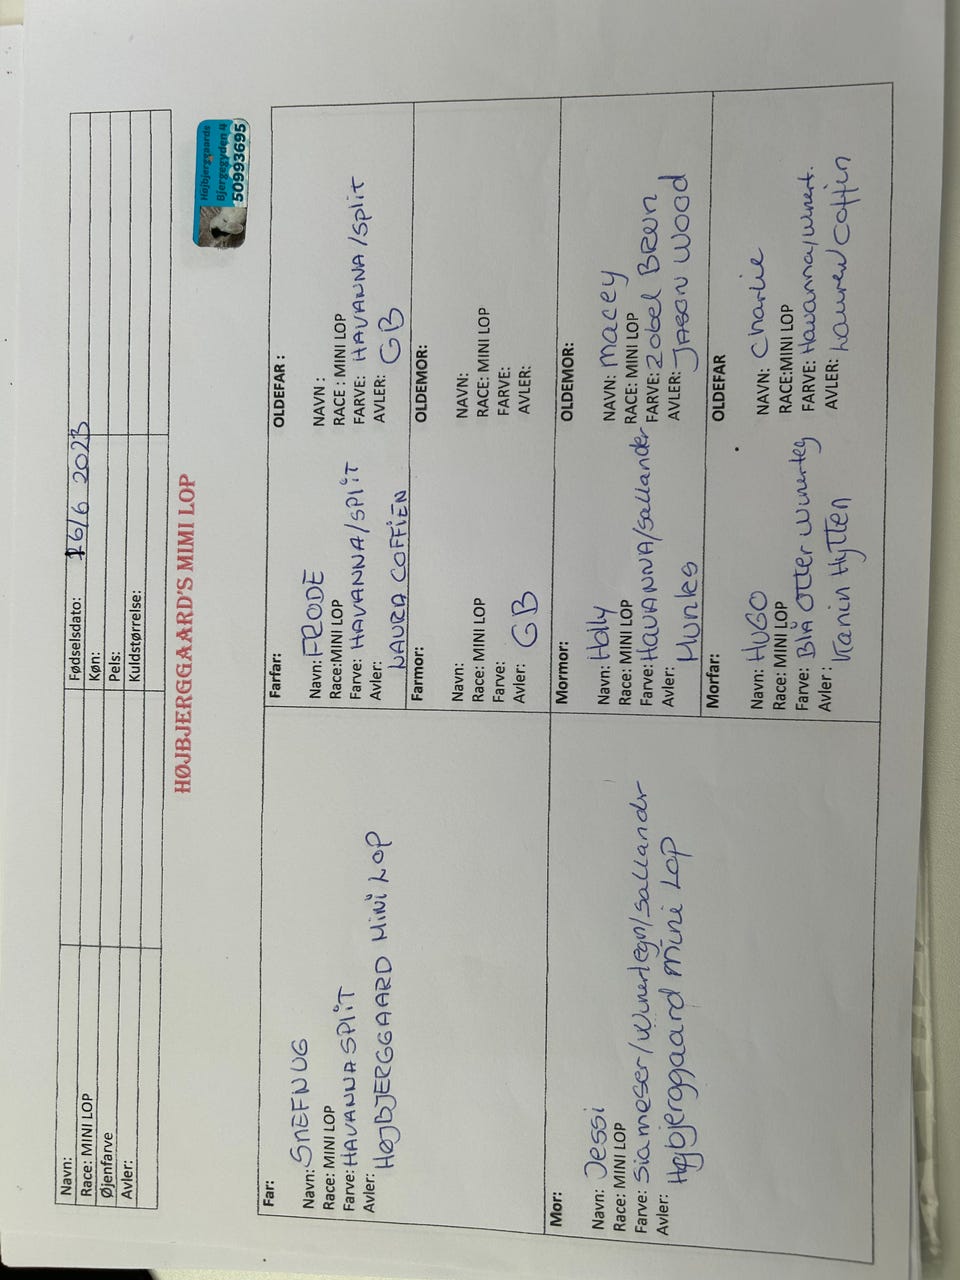 Navn:
Fødselsdato: 16/6 2023
Race: MINI LOP
Køn:
Øjenfarve
Pels:
Avler:
Kuldstørrelse:
HØJBJERGGAARD'S MIMI LOP
Højbjerggaards
Bjergegyden 4
50993695
Far:
Navn: SNEFNUG
Race: MINI LOP
Farve: HAVANNA SPLIT
Avler:
HØJBJERGGAARD MINI LOP
Farfar:
Navn: FRODE
Race:MINI LOP
Farve: HAVANNA/SPLIT
Avler:
LAURA COFFIEN
OLDEFAR :
NAVN :
RACE : MINI LOP
FARVE: HAVANNA/split
AVLER: GB
Farmor:
Navn:
Race: MINI LOP
Farve:
Avler: GB
OLDEMOR:
NAVN:
RACE: MINI LOP
FARVE:
AVLER:
Mor:
Navn: Jessi
Race: MINI LOP
Farve: Siameser/Winertegn/Sallandr
Avler: Højbjerggaard Mini Lop
Mormor:
Navn: Holly
Race: MINI LOP
Farve: HAVANNA/Sallander
Avler: Munkes
OLDEMOR:
NAVN: Macey
RACE: MINI LOP
FARVE: Zobel BRUN
AVLER: JASON WOOD
Morfar:
Navn: HUGO
Race: MINI LOP
Farve: Blå OTTER Winerteg
Avler : Kanin Hytten
OLDEFAR
NAVN: Charlie
RACE:MINI LOP
FARVE: Havanna/Winert.
AVLER: Lauren Coffin